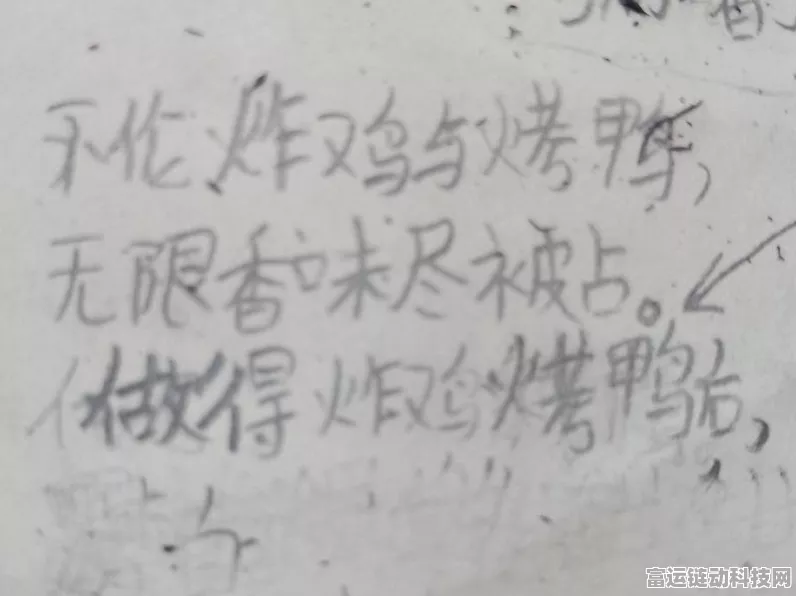 不伦炸鸡与烤鸭,
无限香味尽被占。
做得炸鸡烤鸭后,
富运链动科技网